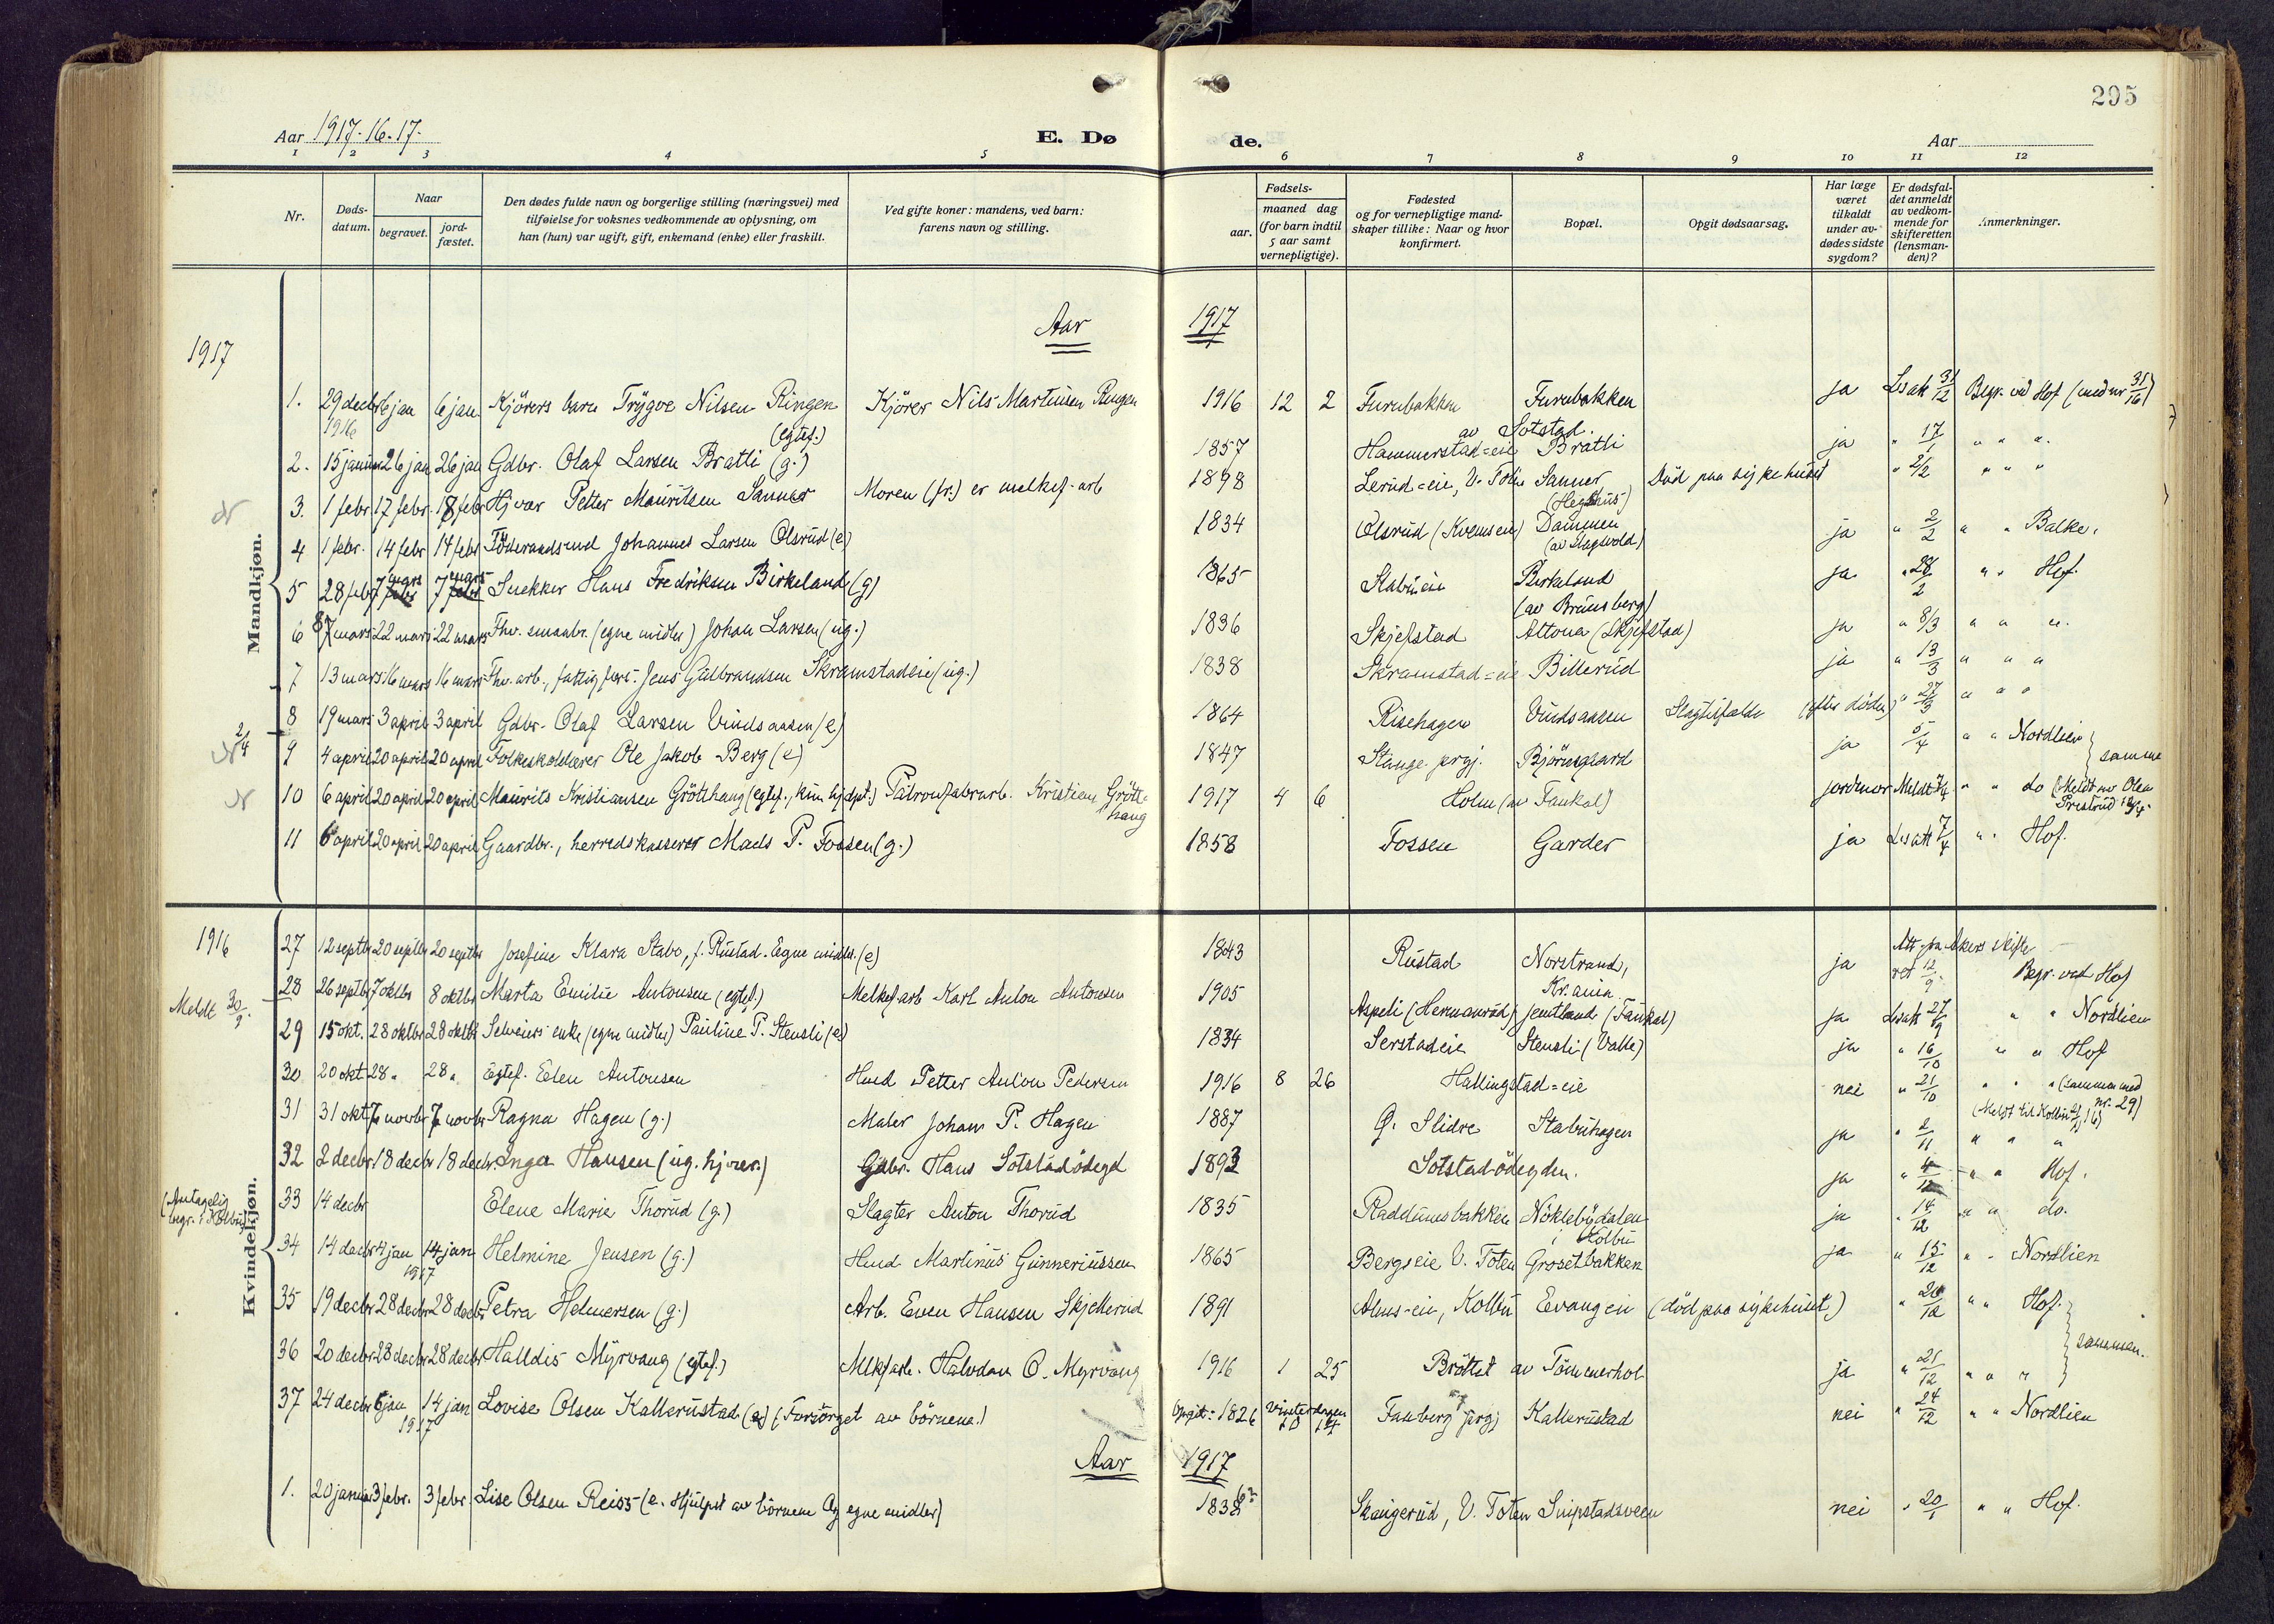 295
Aar 1917-16-17.
E. Dø
de.
Aar
1 2 3 4 5 6 7 8 9 10 11 12
Nr.
Døds-
datum.
Naar
begravet.
jord-
fæstet.
Den dødes fulde navn og borgerlige stilling (næringsvei) med
tilføielse for voksnes vedkommende av oplysning, om
han (hun) var ugift, gift, enkemand (enke) eller fraskilt.
Ved gifte koner: mandens, ved barn:
farens navn og stilling.
Fødsels-
aar.
maaned dag
(for barn indtil
5 aar samt
vernepligtige).
Fødested
og for vernepligtige mand-
skaper tillike: Naar og hvor
konfirmert.
Bopæl.
Opgit dødsaarsag.
Har læge
været
tilkaldt
under av-
dødes sidste
sygdom?
Er dødsfal-
det anmeldt
av vedkom-
mende for
skifteretten
(lensman-
den)?
Anmerkninger.
Mandkjøn.
1917
Aar 1917
1. 29 decbr 1916 6 jan 6 jan. Kjörers barn Trÿgve Nilsen Ringen (egtef.) Kjörer Nils Martinsen Ringen 1916 12 2 Furubakken Furubakken av Sotstad. ja Lsatt 31/12 Begr. ved Hof (med nr 35/16)
2. 15 januar 26 jan 26 jan Gdbr. Olaf Larsen Bratli (g.) 1857 Hammerstad=eie Bratli ja " 17/1 " " "
3. 1 febr. 17 febr. 18 febr Petter Mauritsen Sanner Moren (fr.) er melkef-arb 1898 Lerud=eie, V. Toten Sanner (Hegshus) Död paa sykehuset " 2/2 " " "
4 1 febr. 14 febr 14 febr Föderaadsmd Johannes Larsen Olsrud (e) 1834 Olsrud (Kvemsen) Dammen (av Slagsvold) ja " 2/2 " " Balke.
5 28 febr 7 mars 7 mars Snekker Hans Fredriksen Birkeland (g) 1865 Stabueie Birkeland (av Brunsberg) ja " 28/2 " " Hof.
6 7 mars 22 mars 22 mars Fhv. smaabr. (egne midler) Johan Larsen (ug.) 1836 Skjefstad Altona (Skjefstad) ja " 8/3 " " "
7 13 mars 16 mars 16 mars Fhv. arb., fattigfors. Jens Gulbrandsen Skramstadeie (ug.) 1838 Skramstad=eie Billerud ja " 13/3 " " "
8 19 mars 3 april 3 april Gdbr. Olaf Larsen Vindsaasen (e) 1864 Risehagen Vindsaasen Slagtilfælde (efter döden) " 27/3 " " "
9 4 april 20 april 20 april Folkeskolelærer Ole Jakob Berg (e) 1847 Stange prgj. Björnsgaard ja 5/4 " " Nordlien } samme
10 6 april 20 april 20 april Maurits Kristiansen Grötthaug (egtef., hjdöpt.) Patronfabrarb. Kristian Grötthaug 1917 4 6 Holm (av Faukal) jordmor Meldt 7/4 " " do (Meldt av Olea Prestrud
11 6 april 20 april 20 april Gaardbr., herredskasserer Mads P. Fossen (g.) 1858 Fossen Garder ja Lsatt 7/4 " " Hof.
Kvindekjøn.
1916
27 12 septbr 20 septbr 20 septbr Josefine Klara Stabo, f. Rustad. Egne midler. (e) 1843 Rustad Norstrand, Kr.ania ja Att. fra Akers skifteret 12/9. Begr. ved Hof
Meldt 30/9.
28 26 septbr 7 oktbr 8 oktbr Marta Emilie Antonsen (egtef.) Melkef.arb Karl Anton Antonsen 1905 Aspeli (Hermanrud) Jemtland (Faukal) ja Lsatt 27/9 " " Nordlien
29 15 okt. 28 oktbr 28 oktbr Selveiers enke (egne midler) Pauline P. Stensli (e) 1834 Serstadeie Stensli (Valle) ja " 16/10 " " Hof
30 20 okt 28 " 28 " Egtef. Elen Antonsen Hmd Petter Anton Pedersen 1916 8 26 Hallingstad=eie nei " 21/10 " " " (sammen med nr. 29)
31 31 okt 7 novbr 7 novbr Ragna Hagen (g.) Maler Johan P. Hagen 1887 Ö. Slidre Stabuhagen ja " 2/11 " " "
32 2 decbr 18 decbr 18 decbr Inga Hansen (ug. hjvær.) Gdbr. Hans Sotstadödegd 1893 Sotstadödegden. ja " 4/12 " " Hof.
(Antagelig begr. i Kolbu)
33 14 decbr Elene Marie Thorud (g.) Slagter Anton Thorud 1835 Raddumsbakken Nöklebÿdalen i Kolbu ja " 14/12 " " do.
34 14 decbr 4 jan 1917 14 jan Helmine Jensen (g.) Hmd Martinus Gunneriussen 1865 Bergseie V. Toten Grosetbakken ja " 15/12 " " Nordlien
35 19 decbr 28 decbr 28 decbr Petra Helmersen (g.) Arb. Even Hansen Skjellerud 1891 Alms=eie, Kolbu Evangeie (död paa sykehuset) " 20/12 " " Hof.
36 20 decbr 28 decbr 28 decbr Halldis Mÿrvang (egtef.) Mlkfarb. Halvdan O. Myrvang 1916 1 25 Bröttet av Tömmerhol ja " 21/12 " " " } sammen.
37 24 decbr 6 jan 1917 14 jan Lovise Olsen Kallerustad (e) (Forsörget av börnene.) Opgit: 1826 Vinterdagen Faaberg prgj Kallerustad nei " 24/12 " " Nordlien
Aar 1917
1. 20 januar 3 febr. 3 febr. Lise Olsen Reiss (e. Hjulpet av börnene og egne midler) 1838 Skaugerud, V. Toten Snipstadsveen nei " 20/1 " " Hof.